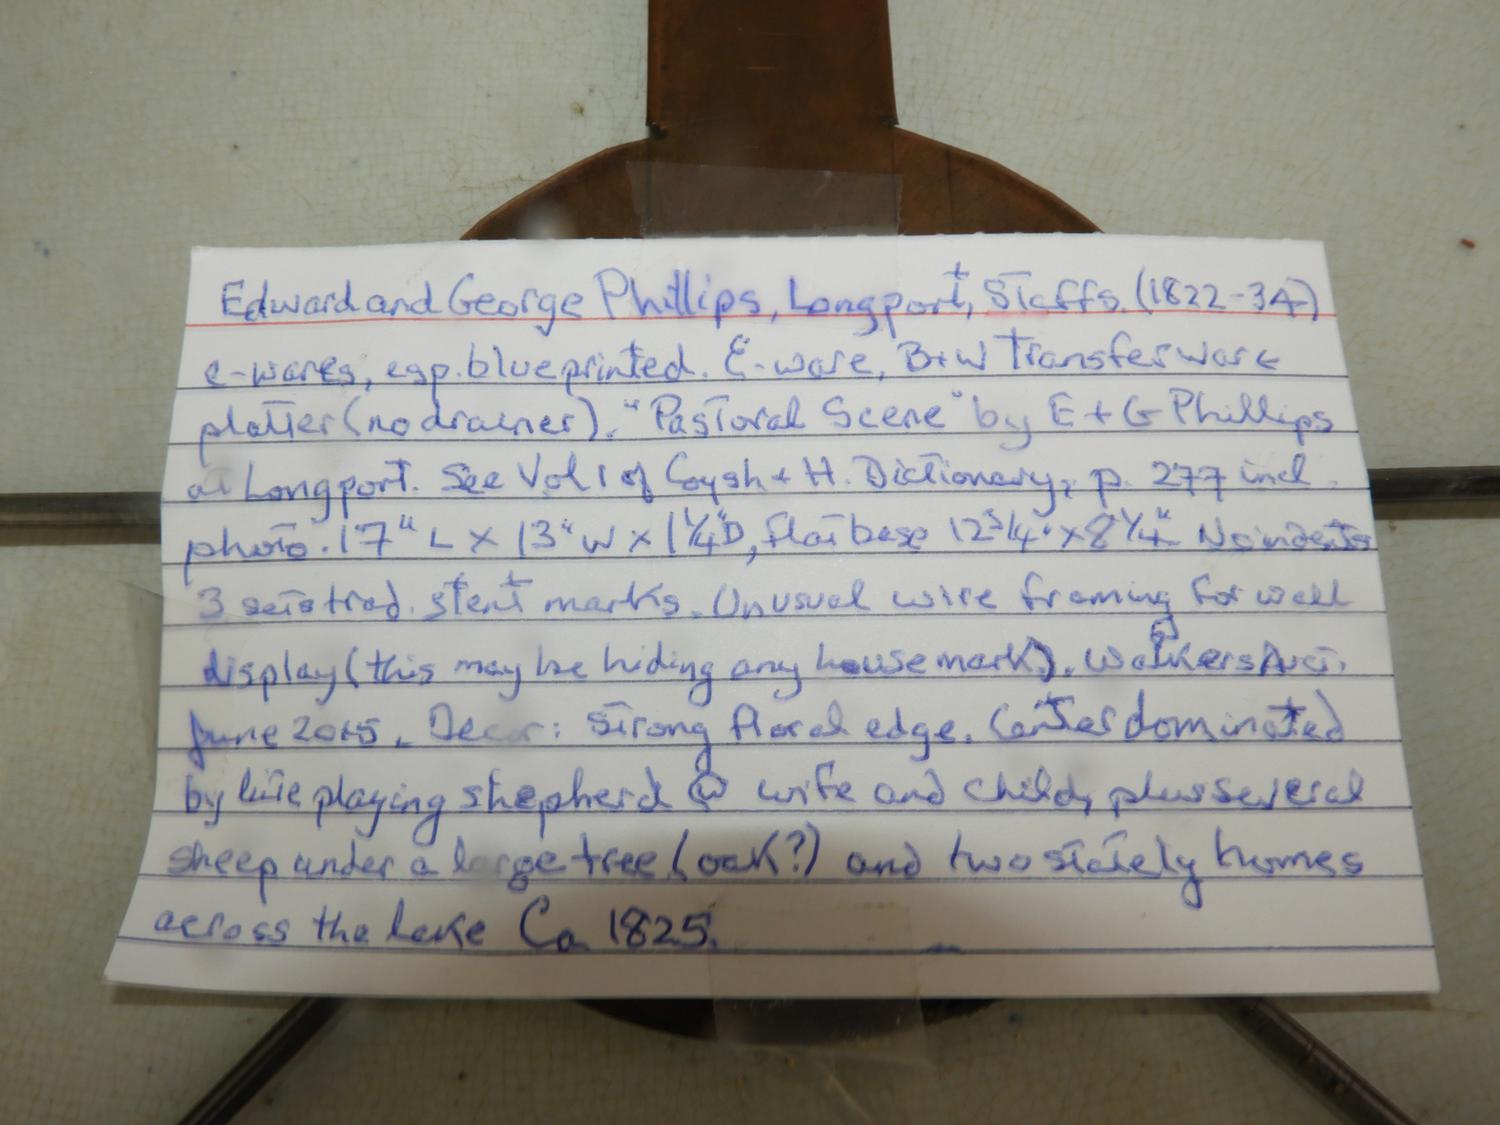 Edward and George Phillips, Longport, Staffs. (1822-34)
e-wares, esp. blue printed. E-ware, B+W Transferware
platter (no drainer). "Pastoral Scene" by E + G Phillips
at Longport. See Vol 1 of Coysh + H. Dictionary, p. 277 incl.
photo. 17" L x 13" W x 1 1/4" D, flat base 12 3/4" x 8 1/4" No indents
3 sets trad. stent marks. Unusual wire framing for wall
display (this may be hiding any house mark). Walkers Auct.
June 2015. Decor: Strong floral edge. Center dominated
by lute playing shepherd @ wife and child, plus several
sheep under a large tree (oak?) and two stately homes
across the lake Ca 1825.